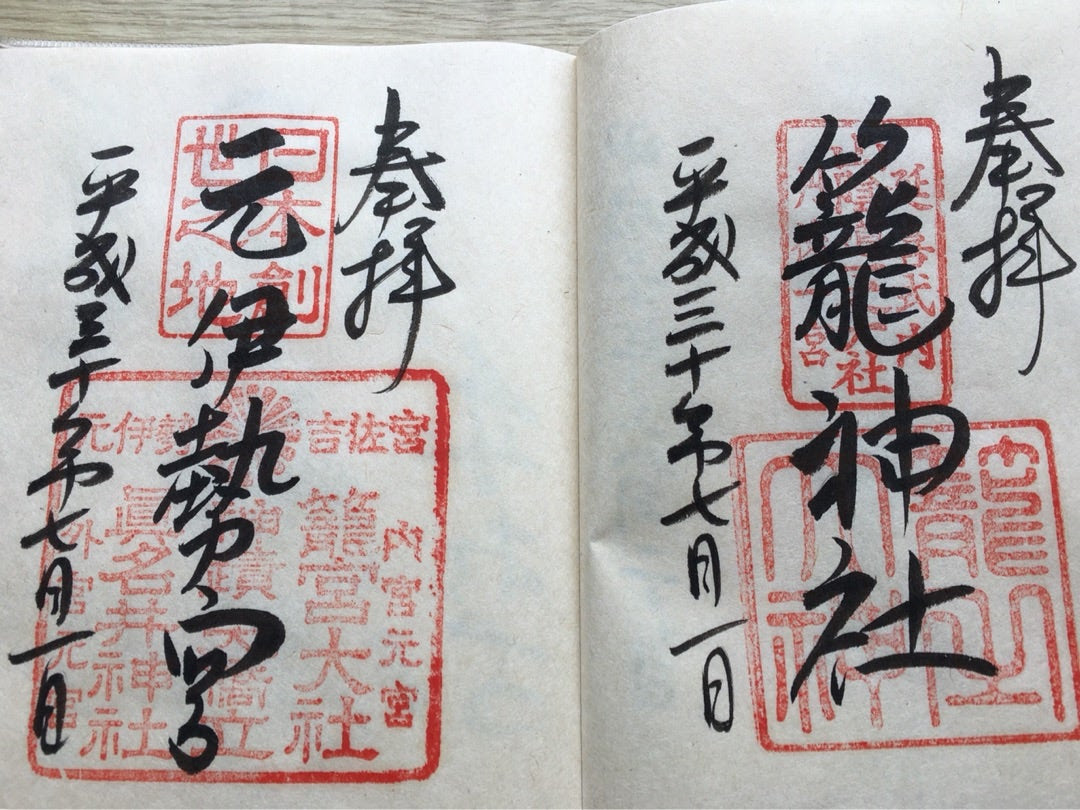 奉拝
延喜式内
籠神社
平成三十年七月一日
奉拝
日本創
世之地
元伊勢宮
平成三十年七月一日
元伊勢
吉佐宮
内宮元宮
籠宮大社
眞名井神社
外宮元宮